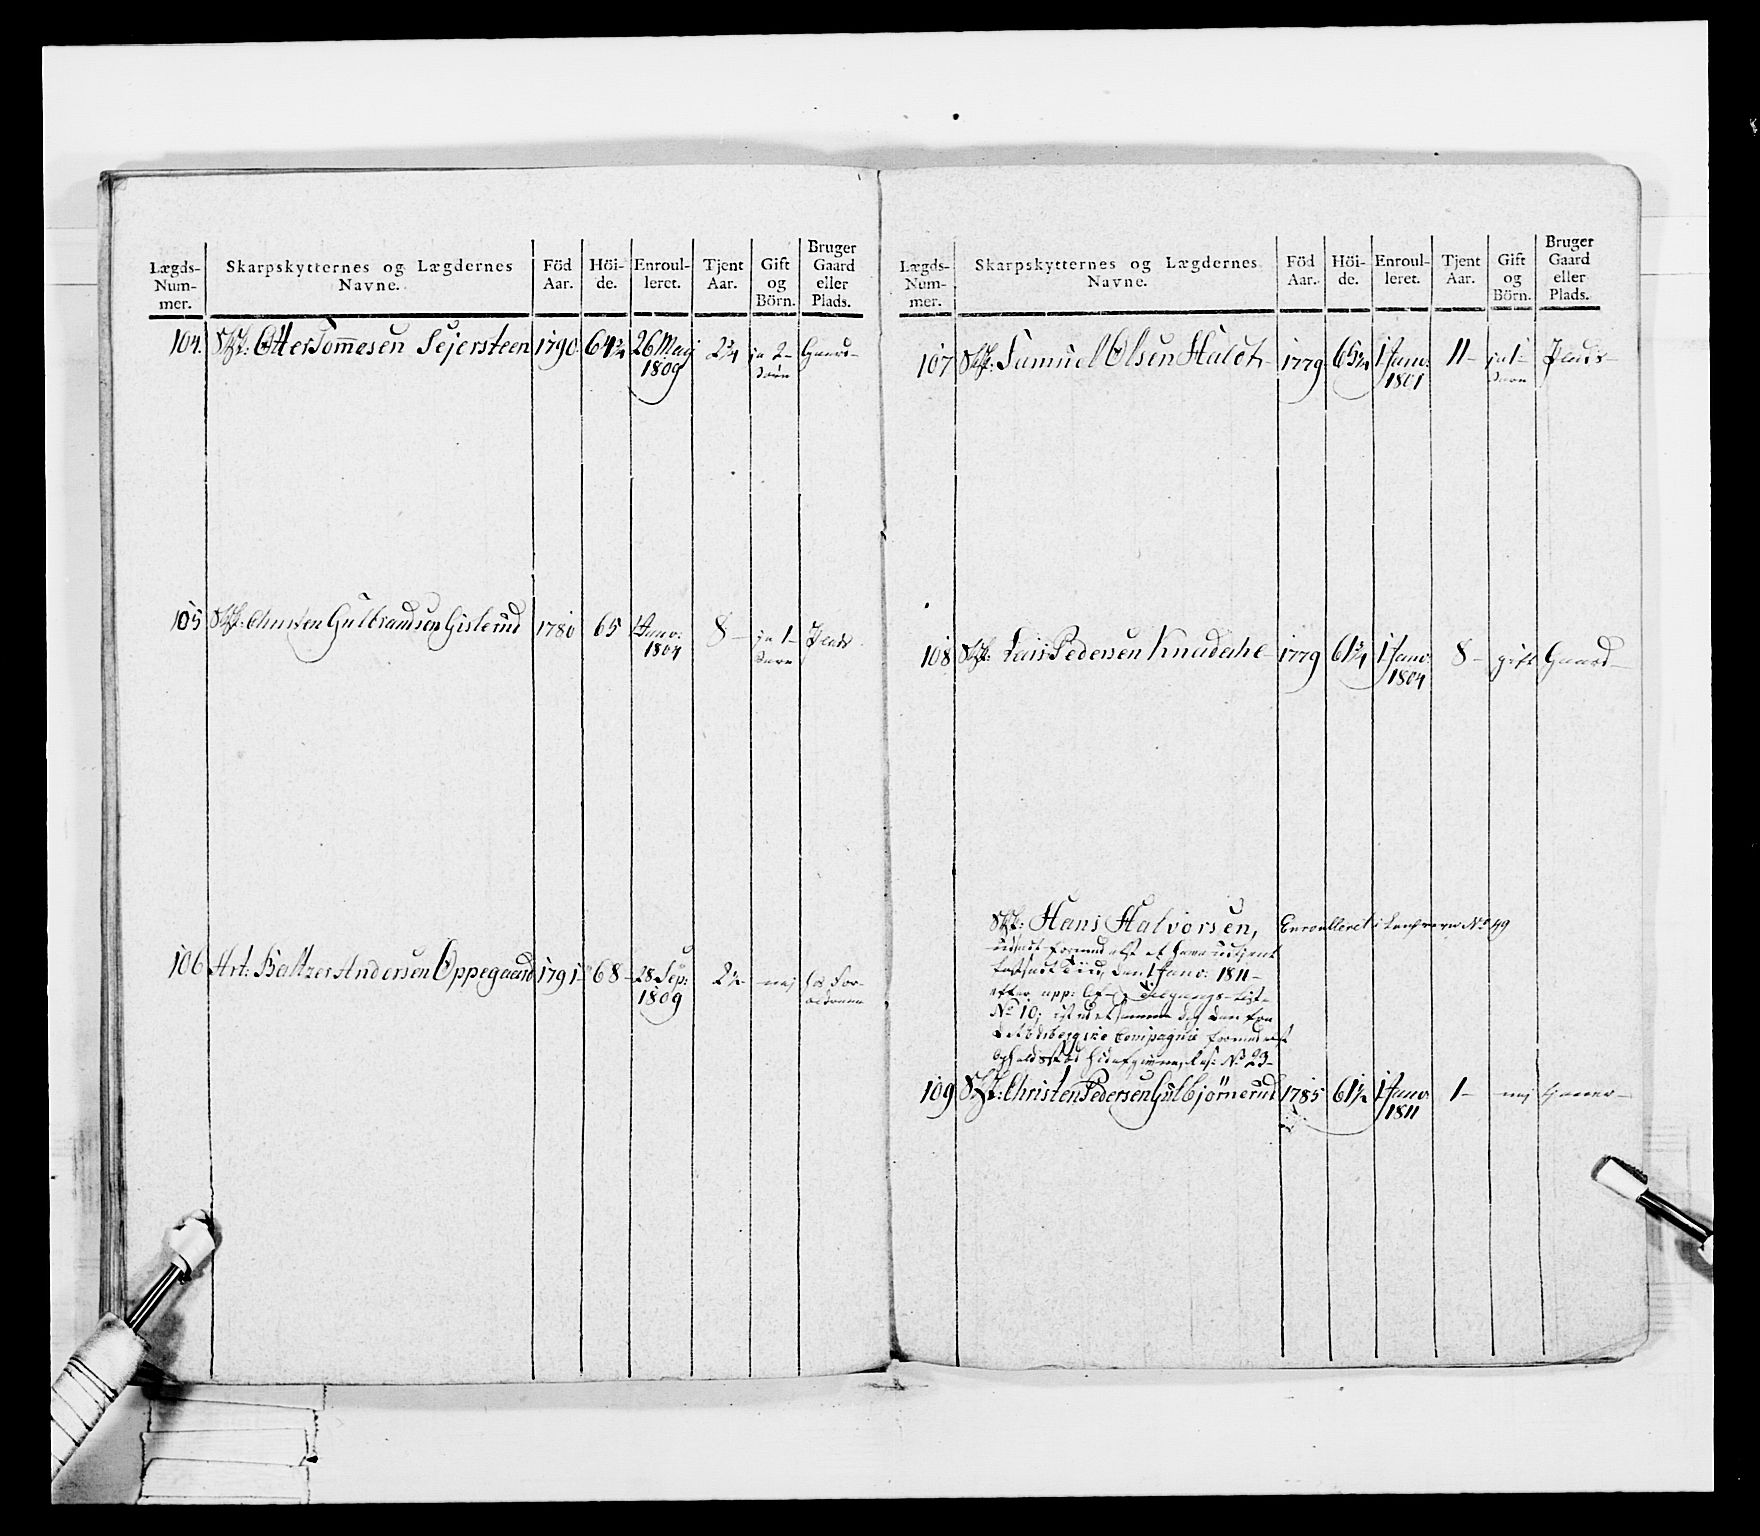 Lægds-Num-mer. Skarpskytternes og Lægdernes Navne. Föd Aar. Höi-de. Enroul-leret. Tjent Aar. Gift og Börn. Bruger Gaard eller Plads.
104. Skp: Otter Tom̅esen Sejersteen 1790 64¾ 26 Maij 1809 2¾ ja 2 Børn Gaard
105 Skp: Christen Gulbrandsen Gislerud 1780 65 1 Janv: 1804 8 – ja 1 – Barn Plads
106 Art: Baltzer Andersen Oppegaard 1791 68 – 28 Sep: 1809 2½ – nej hos For-ældrene
Lægds-Num-mer. Skarpskytternes og Lægdernes Navne. Föd Aar. Höi-de. Enroul-leret. Tjent Aar. Gift og Börn. Bruger Gaard eller Plads.
107 Skp: Samuel Olsen Haldt 1779 65¾ 1 Janv: 1801 11 – ja 1 – Barn Plads –
108 Skp: Lars Pedersen Knudahl 1779 61¾ 1 Janv: 1804 8 – gift Gaard –
Skp: Hans Halvorsen, Enroulleret i Nº 49
udsat formedelst at have udtjent
fastsat Tiid, den 1 Janv: 1811 –
efter app: Af- og Tilgangs-Liste
Nº 10;
Compagnie formedelst
Nº 23 –
109 Skp: Christen Pedersen Gulbjørnerud 1785 61½ 1 Janv: 1811 1 – nej tjener –